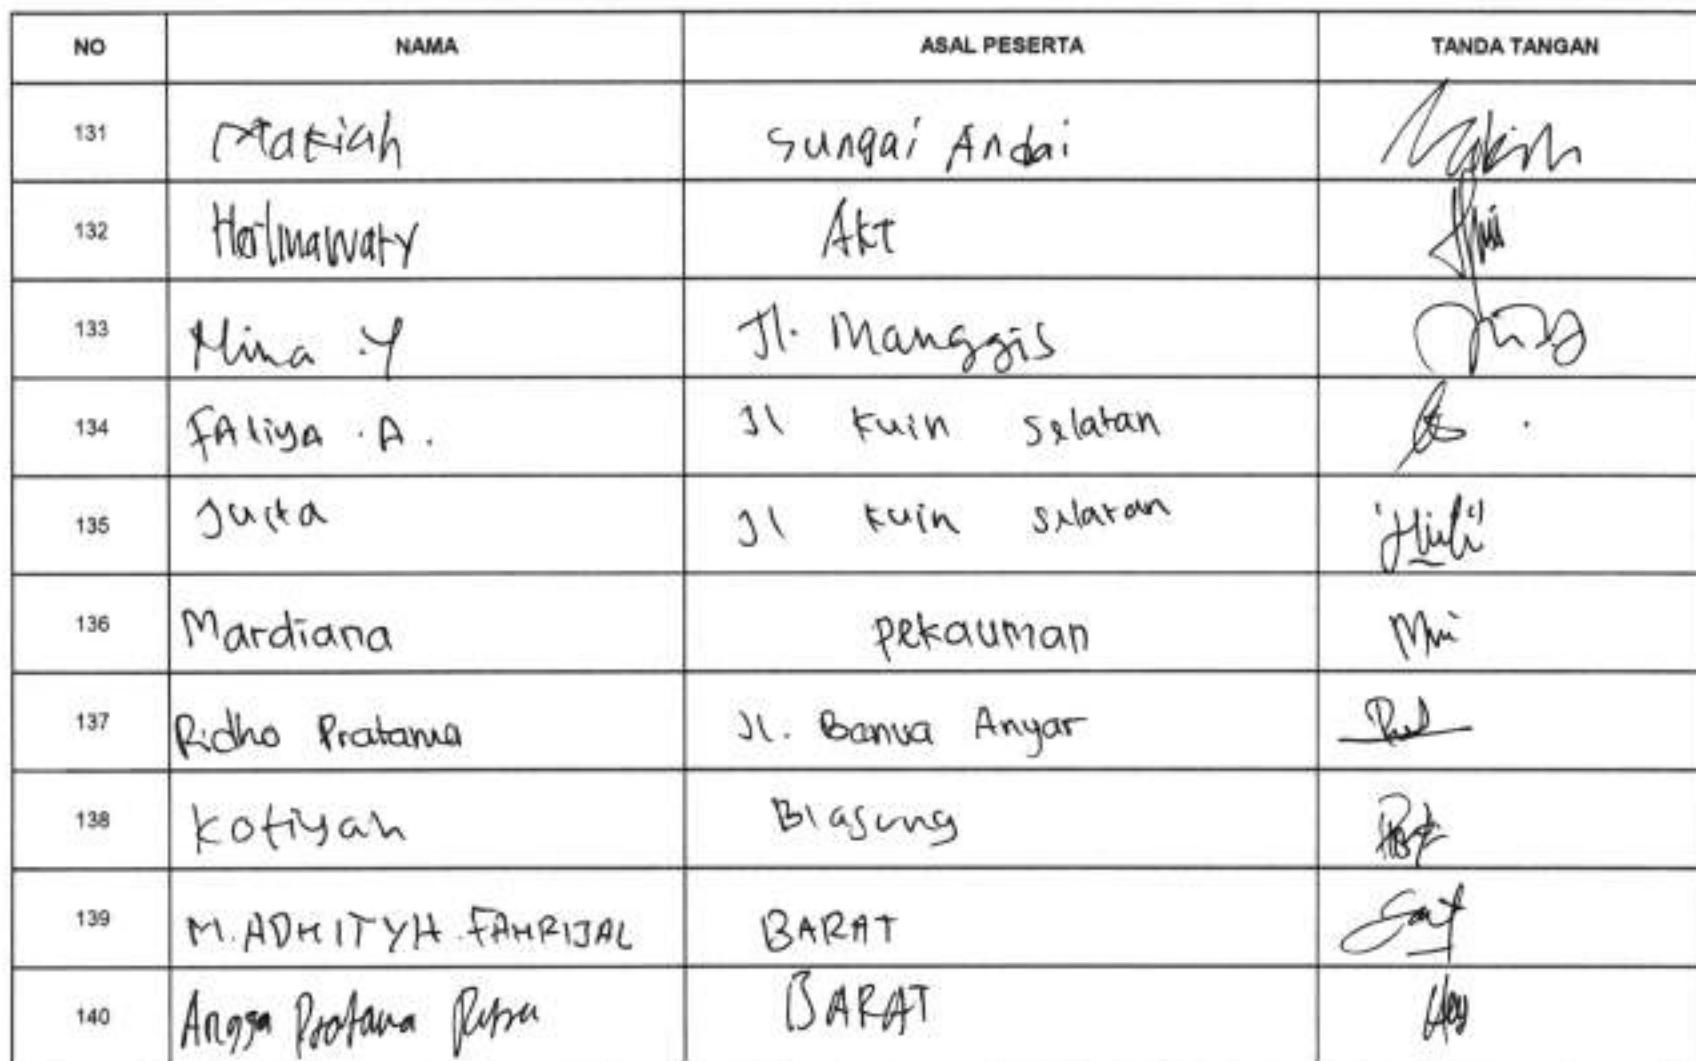 NO NAMA ASAL PESERTA TANDA TANGAN
131 Sungai Andai
132 Herlinawaty AKT
133 Mina .Y Jl. Manggis
134 FAliya .A. Jl Kuin Selatan
135 Juita Jl Kuin Selatan
136 Mardiana Pekauman
137 Ridho Pratama Jl. Banua Anyar
138 Kotiyah Blasung
139 M. ADHITYA FAHRIJAL BARAT
140 Angga Pratama Putra BARAT